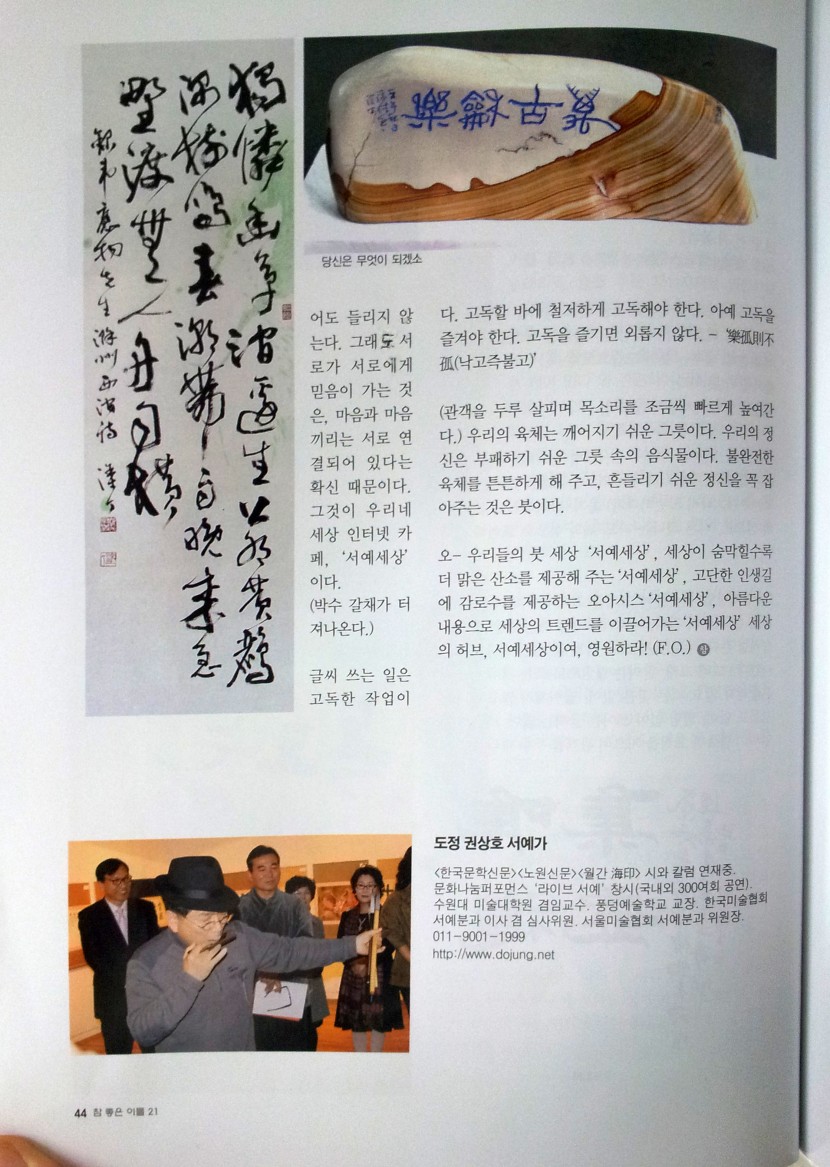 獨憐幽草澗邊生上有黃鸝
深樹鳴春潮帶雨晚來急
野渡無人舟自橫
錄韋應物先生滁州西澗詩
당신은 무엇이 되겠소
어도 들리지 않
는다. 그래도 서
로가 서로에게
믿음이 가는 것
은, 마음과 마음
끼리는 서로 연
결되어 있다는
확신 때문이다.
그것이 우리네
세상 인터넷 카
페, ‘서예세상’
이다.
(박수 갈채가 터
져나온다.)
글씨 쓰는 일은
고독한 작업이
다. 고독할 바에 철저하게 고독해야 한다. 아예 고독을
즐겨야 한다. 고독을 즐기면 외롭지 않다. – ‘樂孤則不
孤(낙고즉불고)’
(관객을 두루 살피며 목소리를 조금씩 빠르게 높여간
다.) 우리의 육체는 깨어지기 쉬운 그릇이다. 우리의 정
신은 부패하기 쉬운 그릇 속의 음식물이다. 불완전한
육체를 튼튼하게 해 주고, 흔들리기 쉬운 정신을 꼭 잡
아주는 것은 붓이다.
오– 우리들의 붓 세상 ‘서예세상’, 세상이 숨막힐수록
더 맑은 산소를 제공해 주는 ‘서예세상’, 고단한 인생길
에 감로수를 제공하는 오아시스 ‘서예세상’, 아름다운
내용으로 세상의 트렌드를 이끌어가는 ‘서예세상’ 세상
의 허브, 서예세상이여, 영원하라! (F.O.)
도정 권상호 서예가
<한국문학신문><노원신문><월간 海印> 시와 칼럼 연재중.
문화나눔퍼포먼스 ‘라이브 서예’ 창시(국내외 300여회 공연).
수원대 미술대학원 겸임교수. 풍덩예술학교 교장. 한국미술협회
서예분과 이사 겸 심사위원. 서울미술협회 서예분과 위원장.
011–9001–1999
http://www.dojung.net
44 참 좋은 이름 21